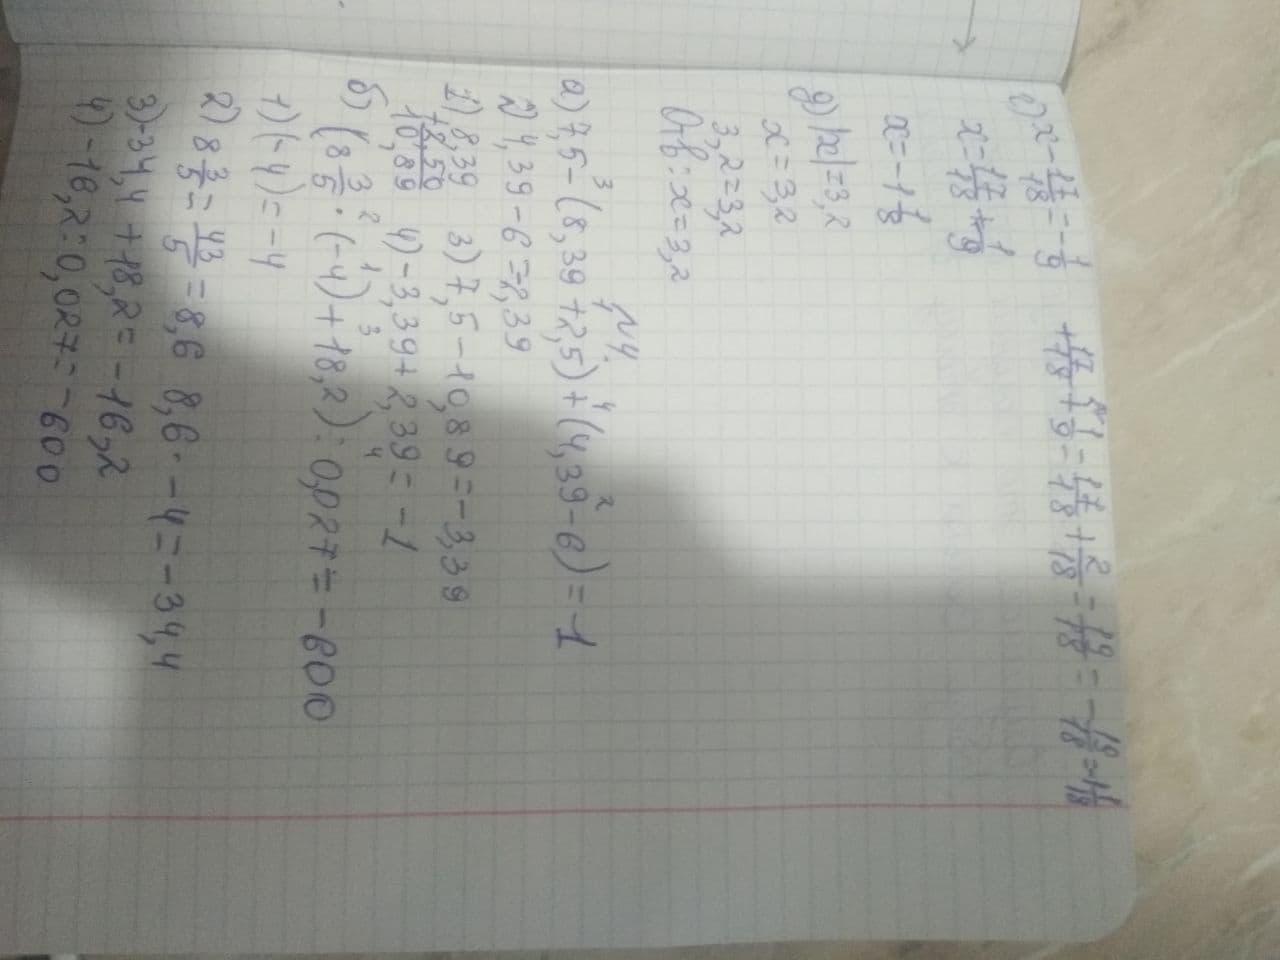 г) x - 17/18 = - 1/9 + 17/18 + 1/9 = 17/18 + 2/18 = 19/18 = - 19/18 = -1 1/18
x = 17/18 + 1/9
x = -1 1/8
д) |x| = 3,2
x = 3,2
3,2 = 3,2
Отв: x = 3,2
№4.
а) 7,5 - (8,39 + 2,5) + (4,39 - 6) = -1
2) 4,39 - 6 = -2,39
1) 8,39 3) 7,5 - 10,89 = -3,39
+ 2,50
10,89 4) -3,39 + 2,39 = -1
б) (8 3/5 · (-4) + 18,2) : 0,027 = -600
1) (-4) = -4
2) 8 3/5 = 43/5 = 8,6 8,6 · -4 = -34,4
3) -34,4 + 18,2 = -16,2
4) -16,2 : 0,027 = -600